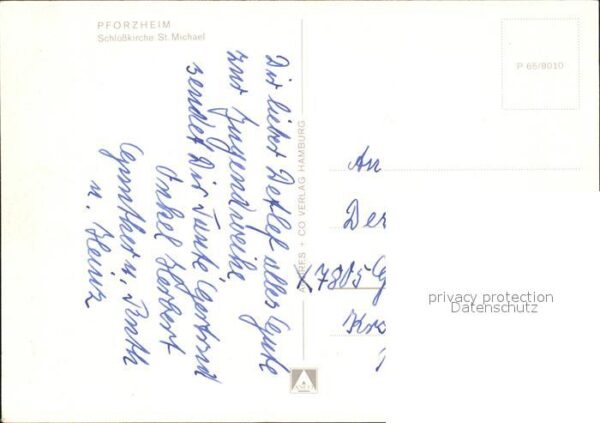 PFORZHEIM
Schloßkirche St. Michael
Dir lieber Detlef alles Gute
zur Jugendweihe
sendet Dir Tante Gertrud
Onkel Herbert
Günther u. Ruth
u. Heinz
ANDRES + CO VERLAG HAMBURG
P 65/8010
An
Der
X 7805 G
Kro
privacy protection
Datenschutz